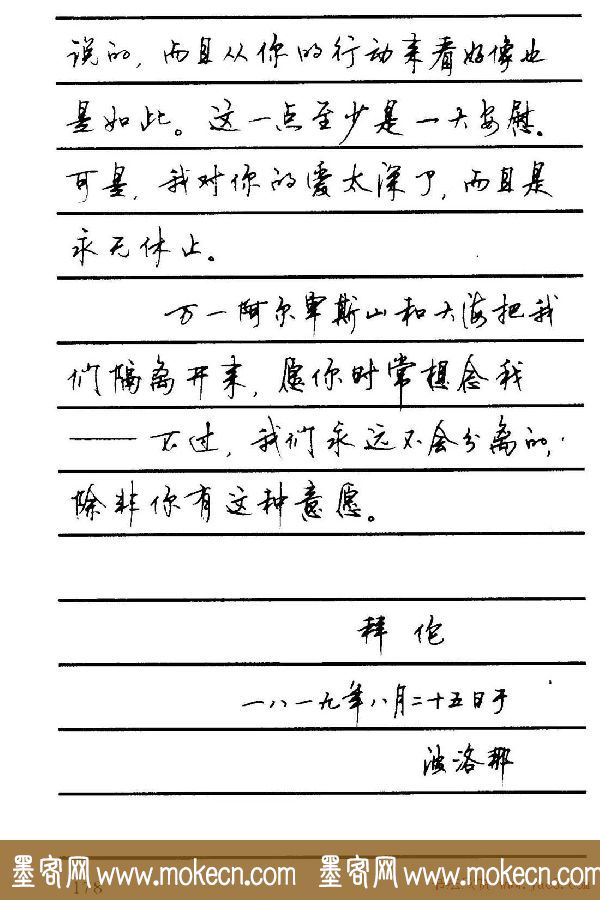 说的，而且从你的行动来看好像也
是如此。这一点至少是一大安慰。
可是，我对你的爱太深了，而且是
永无休止。
万一阿尔卑斯山和大海把我
们隔离开来，愿你时常想念我
——不过，我们永远不会分离的，
除非你有这种意愿。
拜伦
一八一九年八月二十五日于
波洛那
墨客网 www.mokecn.com 墨客网 www.mokecn.com
178